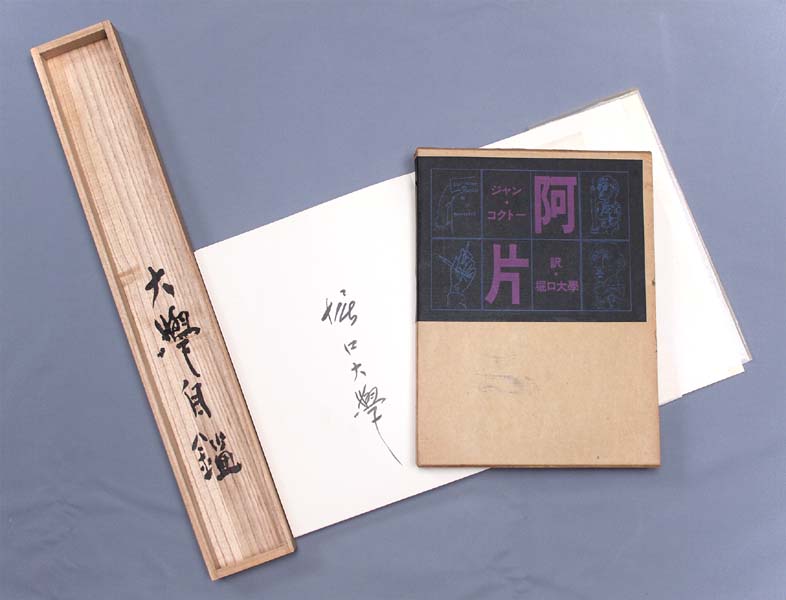 大學自鑑
堀口大學
ジャン・コクトー
阿片
訳・堀口大學